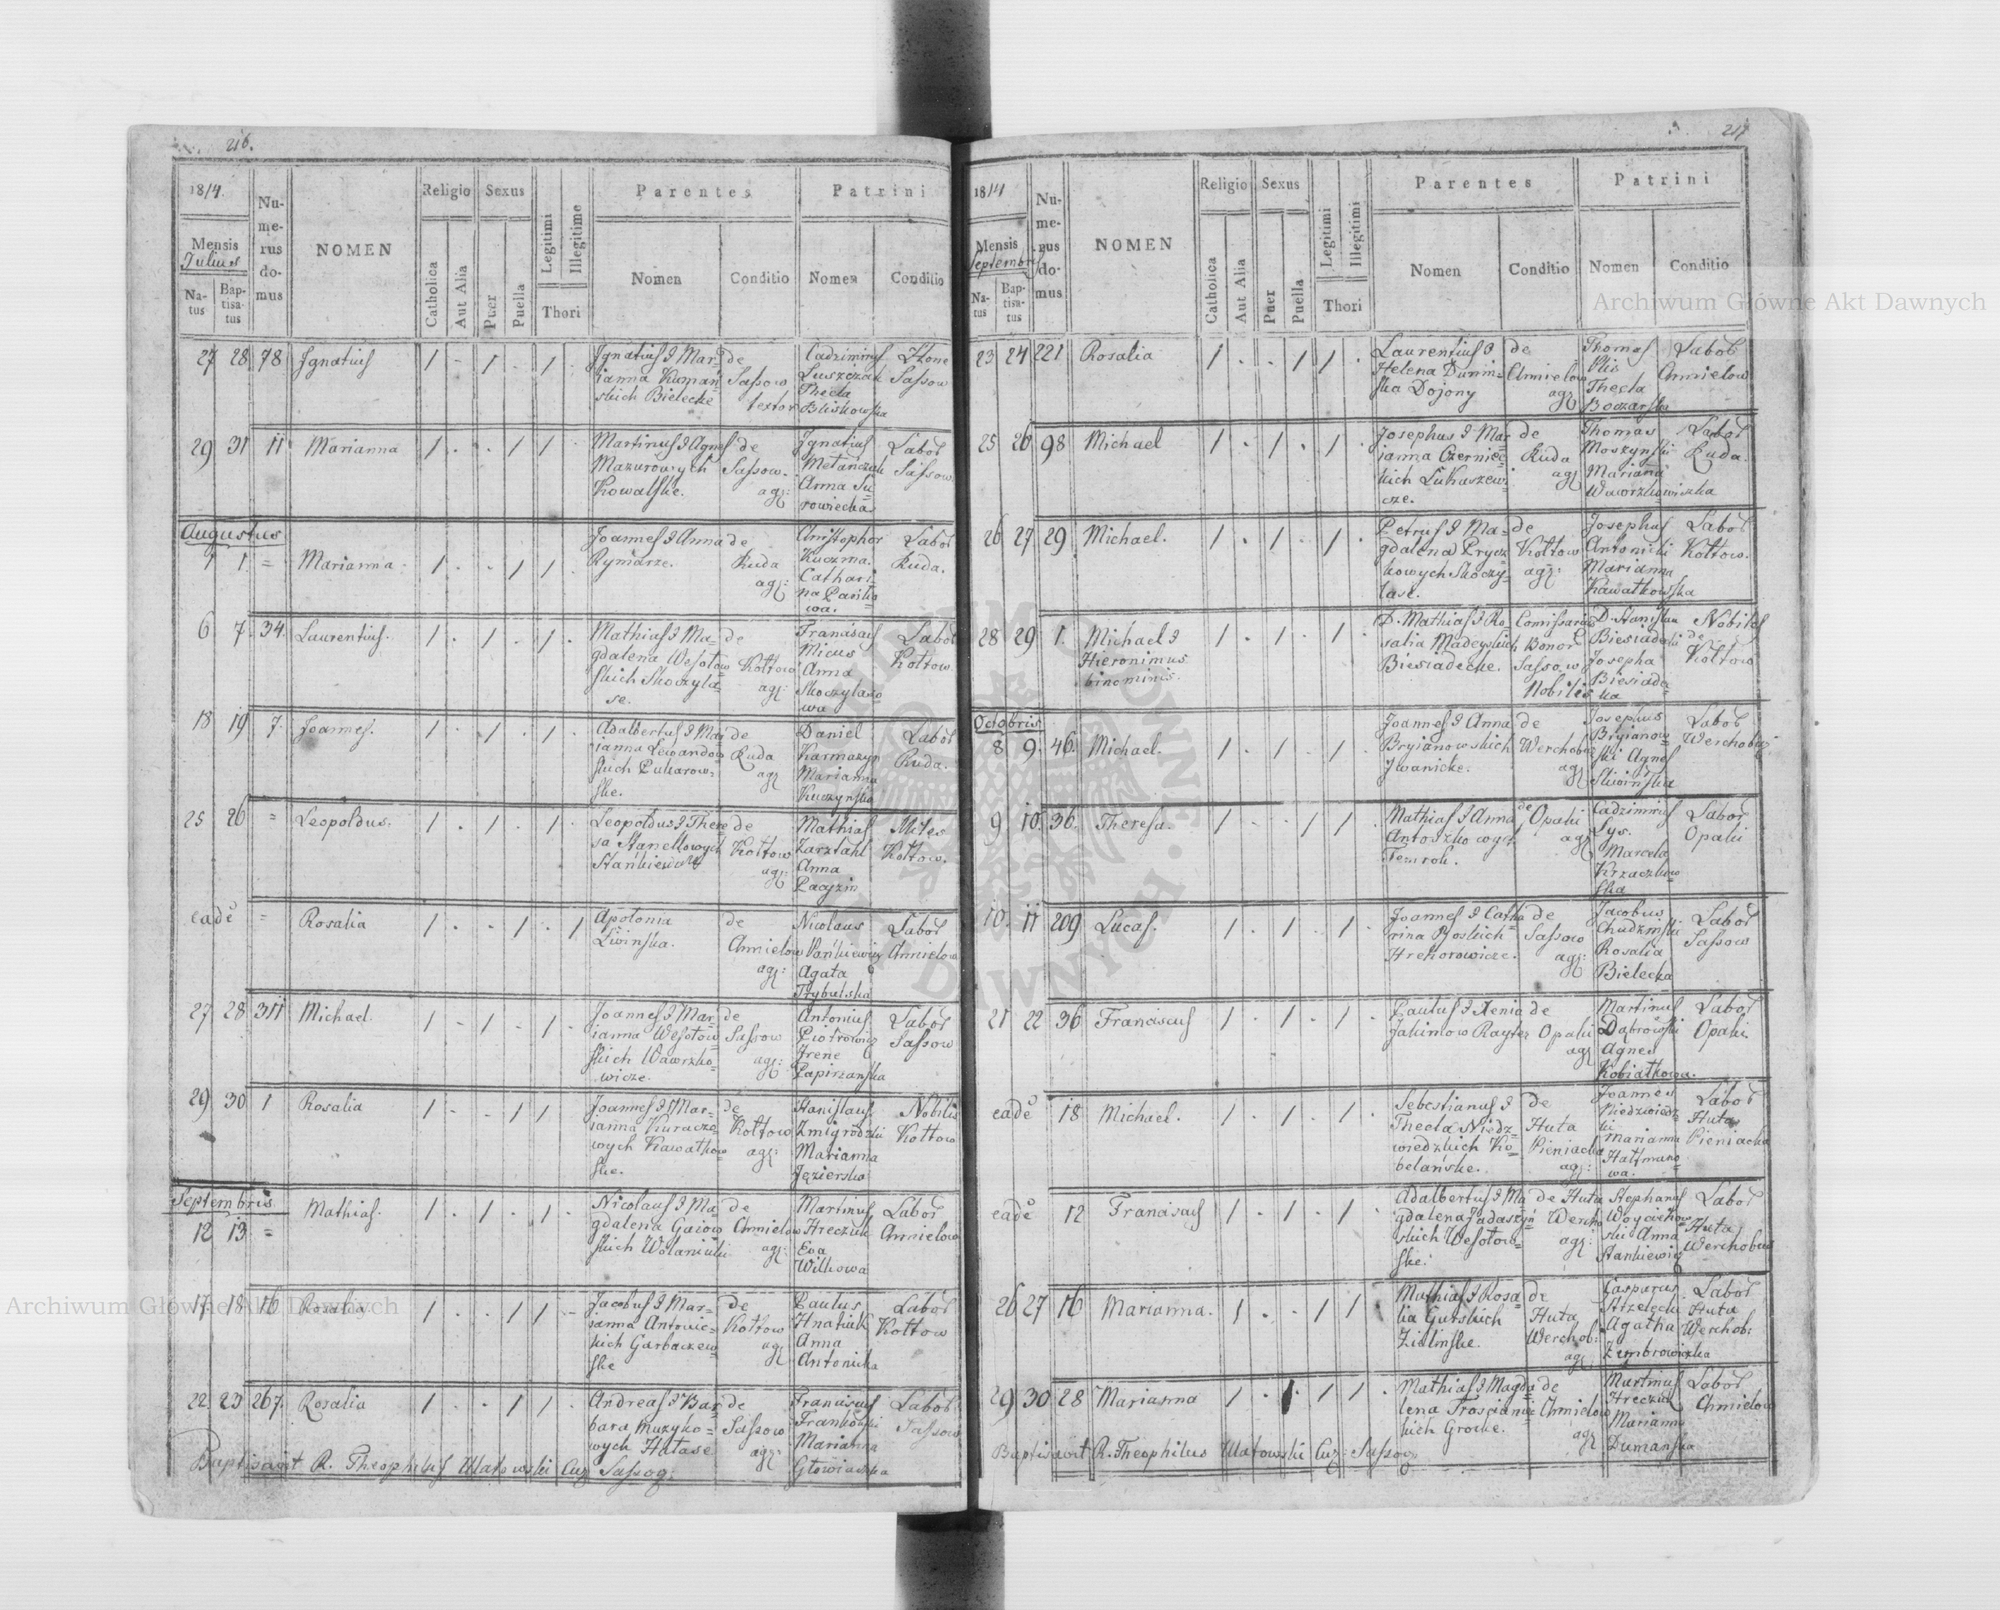 216.
1814.
Mensis
Julius
Natus
Baptisatus
Numerus domus
NOMEN
Religio
Catholica
Aut Alia
Sexus
Puer
Puella
Legitimi
Illegitime
Thori
Parentes
Nomen
Conditio
Patrini
Nomen
Conditio
27 28 78 Ignatius 1 - 1 · 1 ·
Ignatius & Mar=
ianna
skich Bielecke
de
Sassow
textor
Cadzimirus
Luszczak
Thecla
Bliskowska
Sassow
29 31 11 Marianna 1 · · 1 1
Martinus & Agnes
Mazurowych
Kowalske.
de
Sassow.
agr:
Ignatius
Metanczuk
Anna Su=
rowiecka
Labor
Sassow
Augustus
1 1 = Marianna 1 · · 1 1 ·
Joannes & Anna
Rymarze.
de
Ruda
agr:
Christophor
Kuczma.
Cathari=
na
wa.
Labor
Ruda.
6 7 34 Laurentius. 1 · 1 · 1 ·
Mathias & Ma=
gdalena Wesołow=
skich Skoczyla=
se.
de
Kołtow
agr:
Franciscus
Micus
Anna
Skoczylaso=
wa
Labor
Kołtow
18 19 7. Joannes. 1 · 1 · 1 ·
Adalbertus & Mar=
ianna Lewandow=
skich Pukarow=
ske.
de
Ruda
agr
Daniel
Karmazyn
Marianna
Kuczynska
Labor
Ruda.
25 26 = Leopoldus. 1 · 1 · 1
Leopoldus & There=
sa Stanellowych
Stankiewicze
de
Kołtow
agr:
Mathias
Zarztahl
Anna
Pacyzin
Miles
Kołtow.
eadē = Rosalia 1 · · 1 · 1
Apolonia
Liwinska.
de
Chmielow
agr:
Nicolaus
Pańkiewicz
Agata
Trybulska
Labor
Chmielow
27 28 311 Michael. 1 - 1 - 1 ·
Joannes & Mar=
ianna Wesołow=
skich Wawrzko=
wicze.
de
Sassow
agr:
Antonius
Piotrowicz
Irene
Papirzanska
Labor
Sassow
29 30 1 Rosalia 1 - · 1 1
Joannes & Mar=
ianna Kuracze=
wych Kawałkow=
ske.
de
Kołtow
agr:
Stanislaus
Zmigrodzki
Marianna
Jezierska
Nobilis
Kołtow
Septembris
12 13 = Mathias. 1 · 1 · 1 ·
Nicolaus & Ma=
gdalena Gaiow=
skich Wolaniuki
de
Chmielow
agr:
Martinus
Hreczuk
Eva
Wilkowa
Labor
Chmielow
17 18 16 Rosalia 1 · · 1 1 -
Jacobus & Mar=
ianna Antonic=
kich Garbaczew=
ske
de
Kołtow
agr
Paulus
Hnatiuk
Anna
Antonicka
Labor
Kołtow
22 23 267. Rosalia 1 · · 1 1 ·
Andreas & Bar=
bara Muzyko=
wych Hałase
de
Sassow
agr:
Franciscus
Frankowski
Marianna
Głowiacka
Labor
Sassow
Baptisavit R. Theophilus Ulatowski Cur: Sassov:
217
1814
Mensis
Septembris
Natus
Baptisatus
Numerus domus
NOMEN
Religio
Catholica
Aut Alia
Sexus
Puer
Puella
Legitimi
Illegitimi
Thori
Parentes
Nomen
Conditio
Patrini
Nomen
Conditio
23 24 221 Rosalia 1 · · 1 1 ·
Laurentius &
Helena Dunin=
ska Dojony
de
Chmielow
agr
Thomas
Plis
Thecla
Boczarska
Labor
Chmielow
25 26 98 Michael 1 · 1 · 1 ·
Josephus & Mar=
ianna Czerniec=
kich Lukaszew=
cze.
de
Ruda
agr
Thomas
Moszynski
Mariana
Wawrzkowiczka
Labor
Ruda.
26 27 29 Michael. 1 · 1 · 1 ·
Petrus & Ma=
gdalena Prycz=
kowych Skoczy=
lase.
de
Kołtow
agr:
Josephus
Antonicki
Marianna
Kawałkowska
Labor
Kołtow.
28 29 1. Michael &
Hieronimus
binominis. 1 · 1 · 1 ·
D. Mathias & Ro=
salia Madeyskich
Biesiadecke.
Comissarius
Bonor
Sassow
Nobiles
D Stanislau
Biesiadecki
Josepha
Biesiade=
cka
Nobiles
de
Kołtow
Octobris
8 9. 46. Michael. 1 · 1 · 1 ·
Joannes & Anna
Bryianowskich
Iwanicke.
de
Werchobuz
agr
Josephus
Bryianow=
ski Agnes
Sliwińska
Labor
Werchobuz
9 10. 36. Theresa. 1 · · 1 1 ·
Mathias & Anna
Antoszkowych
de Opaki
agr
Cadzimirus
Lys.
Marcela
Krzaczkow=
ska
Labor
Opaki
10. 11 209 Lucas. 1 · 1 · 1 ·
Joannes & Catha=
rina Roskich
Hrehorowicze.
de
Sassow
agr:
Jacobus
Chudzinski
Rosalia
Bielecka
Labor
Sassow
21 22 36 Franciscus 1 · 1 · 1 ·
Paulus & Xenia
Jakimow Rayter
de
Opaki
agr
Martinus
Dąbrowski
Agnes
Kobiałkowa.
Labor
Opaki.
eadē 18 Michael. 1 · 1 · 1 ·
Sebestianus &
Thecla Niedz=
wiedzkich Ko=
belańske.
de
Huta
Pieniacka
agr:
Joannes
Niedzwiedz=
ki
Marianna
Hałmano=
wa.
Labor
Huta
Pieniacka
eadē 12 Franciscus 1 · 1 · 1 ·
Adalbertus & Ma=
gdalena Jadaszyń=
skich Wesołow=
ske.
de Huta
Wercho
agr:
Stephanus
Woyciechow=
ski Anna
Stankiewicz
Labor
Huta
Werchobuz
26 27 16 Marianna. 1 · · 1 1
Mathias & Rosa=
lia Gutskich
Zielinske.
de
Huta
Werchob:
agr
Casparus
Strzelecki
Agatha
Zembrowiczka
Labor
Huta
Werchob:
29 30 28 Marianna 1 · 1 · 1 1 ·
Mathias & Magda=
lena
kich Grocke.
de
Chmielow
agr
Martinus
Hreczuk
Marianna
Dumanska
Labor
Chmielow
Baptisavit R. Theophilus Ulatowski Cur: Sassov:
Archiwum Główne Akt Dawnych
Archiwum Główne Akt Dawnych
ARCHIWUM GŁÓWNE AKT DAWNYCH